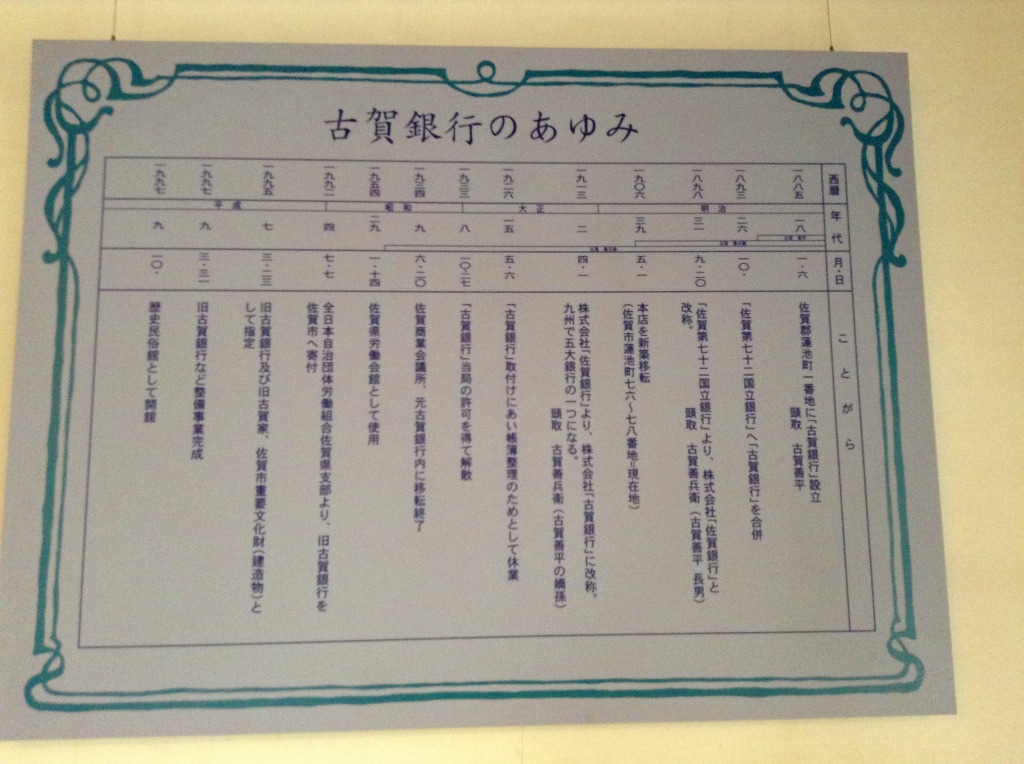 古賀銀行のあゆみ
西暦
年代
月・日
ことがら
明治
大正
昭和
平成
一八八五
一八
一・六
佐賀郡蓮池町一番地に「古賀銀行」設立
頭取 古賀善平
一八九三
二六
一〇・
「佐賀第七十二国立銀行」へ「古賀銀行」を合併
一八九八
三一
九・二〇
「佐賀第七十二国立銀行」より、株式会社「佐賀銀行」と
改称。
頭取 古賀善兵衛(古賀善平 長男)
一九〇六
三九
五・一
本店を新築移転
(佐賀市蓮池町七六~七八番地=現在地)
一九一三
二
四・一
株式会社「佐賀銀行」より、株式会社「古賀銀行」に改称。
九州で五大銀行の一つになる。
頭取 古賀善兵衛(古賀善平の嫡孫)
一九二六
一五
五・六
「古賀銀行」取付けにあい帳簿整理のためとして休業
一九三三
八
一〇・二七
「古賀銀行」当局の許可を得て解散
一九三四
九
六・二〇
佐賀商業会議所、元古賀銀行内に移転終了
一九五四
二九
一・一四
佐賀県労働会館として使用
一九九二
四
七・七
全日本自治団体労働組合佐賀県支部より、旧古賀銀行を
佐賀市へ寄付
一九九五
七
三・二三
旧古賀銀行及び旧古賀家、佐賀市重要文化財(建造物)と
して指定
一九九七
九
三・三一
旧古賀銀行など整備事業完成
一九九七
九
一〇・
歴史民俗館として開館